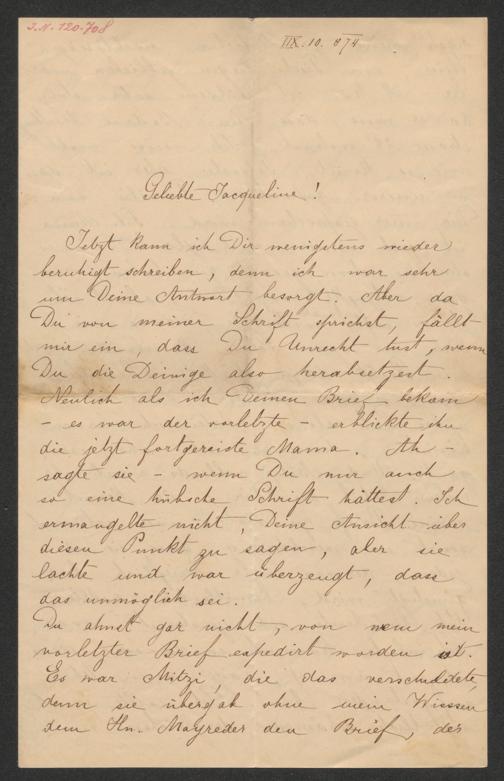 J.N. 120.708
IIX. 10. 874
Geliebte Jacqueline!
Jetzt kann ich Dir wenigstens wieder
beruhigt schreiben, denn ich war sehr
um Deine Antwort besorgt. Aber da
Du von meiner Schrift sprichst, fällt
mir ein, dass Du Unrecht tust, wenn
Du die Deinige also herabsetzest.
Neulich als ich Deinen Brief bekam
– es war der vorletzte – erblickte ihn
die jetzt fortgereiste Mama. Ah –
sagte sie – wenn Du nur auch
so eine hübsche Schrift hättest. Ich
ermangelte nicht, Deine Ansicht über
diesen Punkt zu sagen, aber sie
lachte und war überzeugt, dass
das unmöglich sei.
Du ahnst gar nicht, von wem mein
vorletzter Brief expedirt worden ist.
Es war Mitzi, die das verschuldete,
denn sie übergab ohne mein Wissen
dem Hn. Mayreder den Brief, der